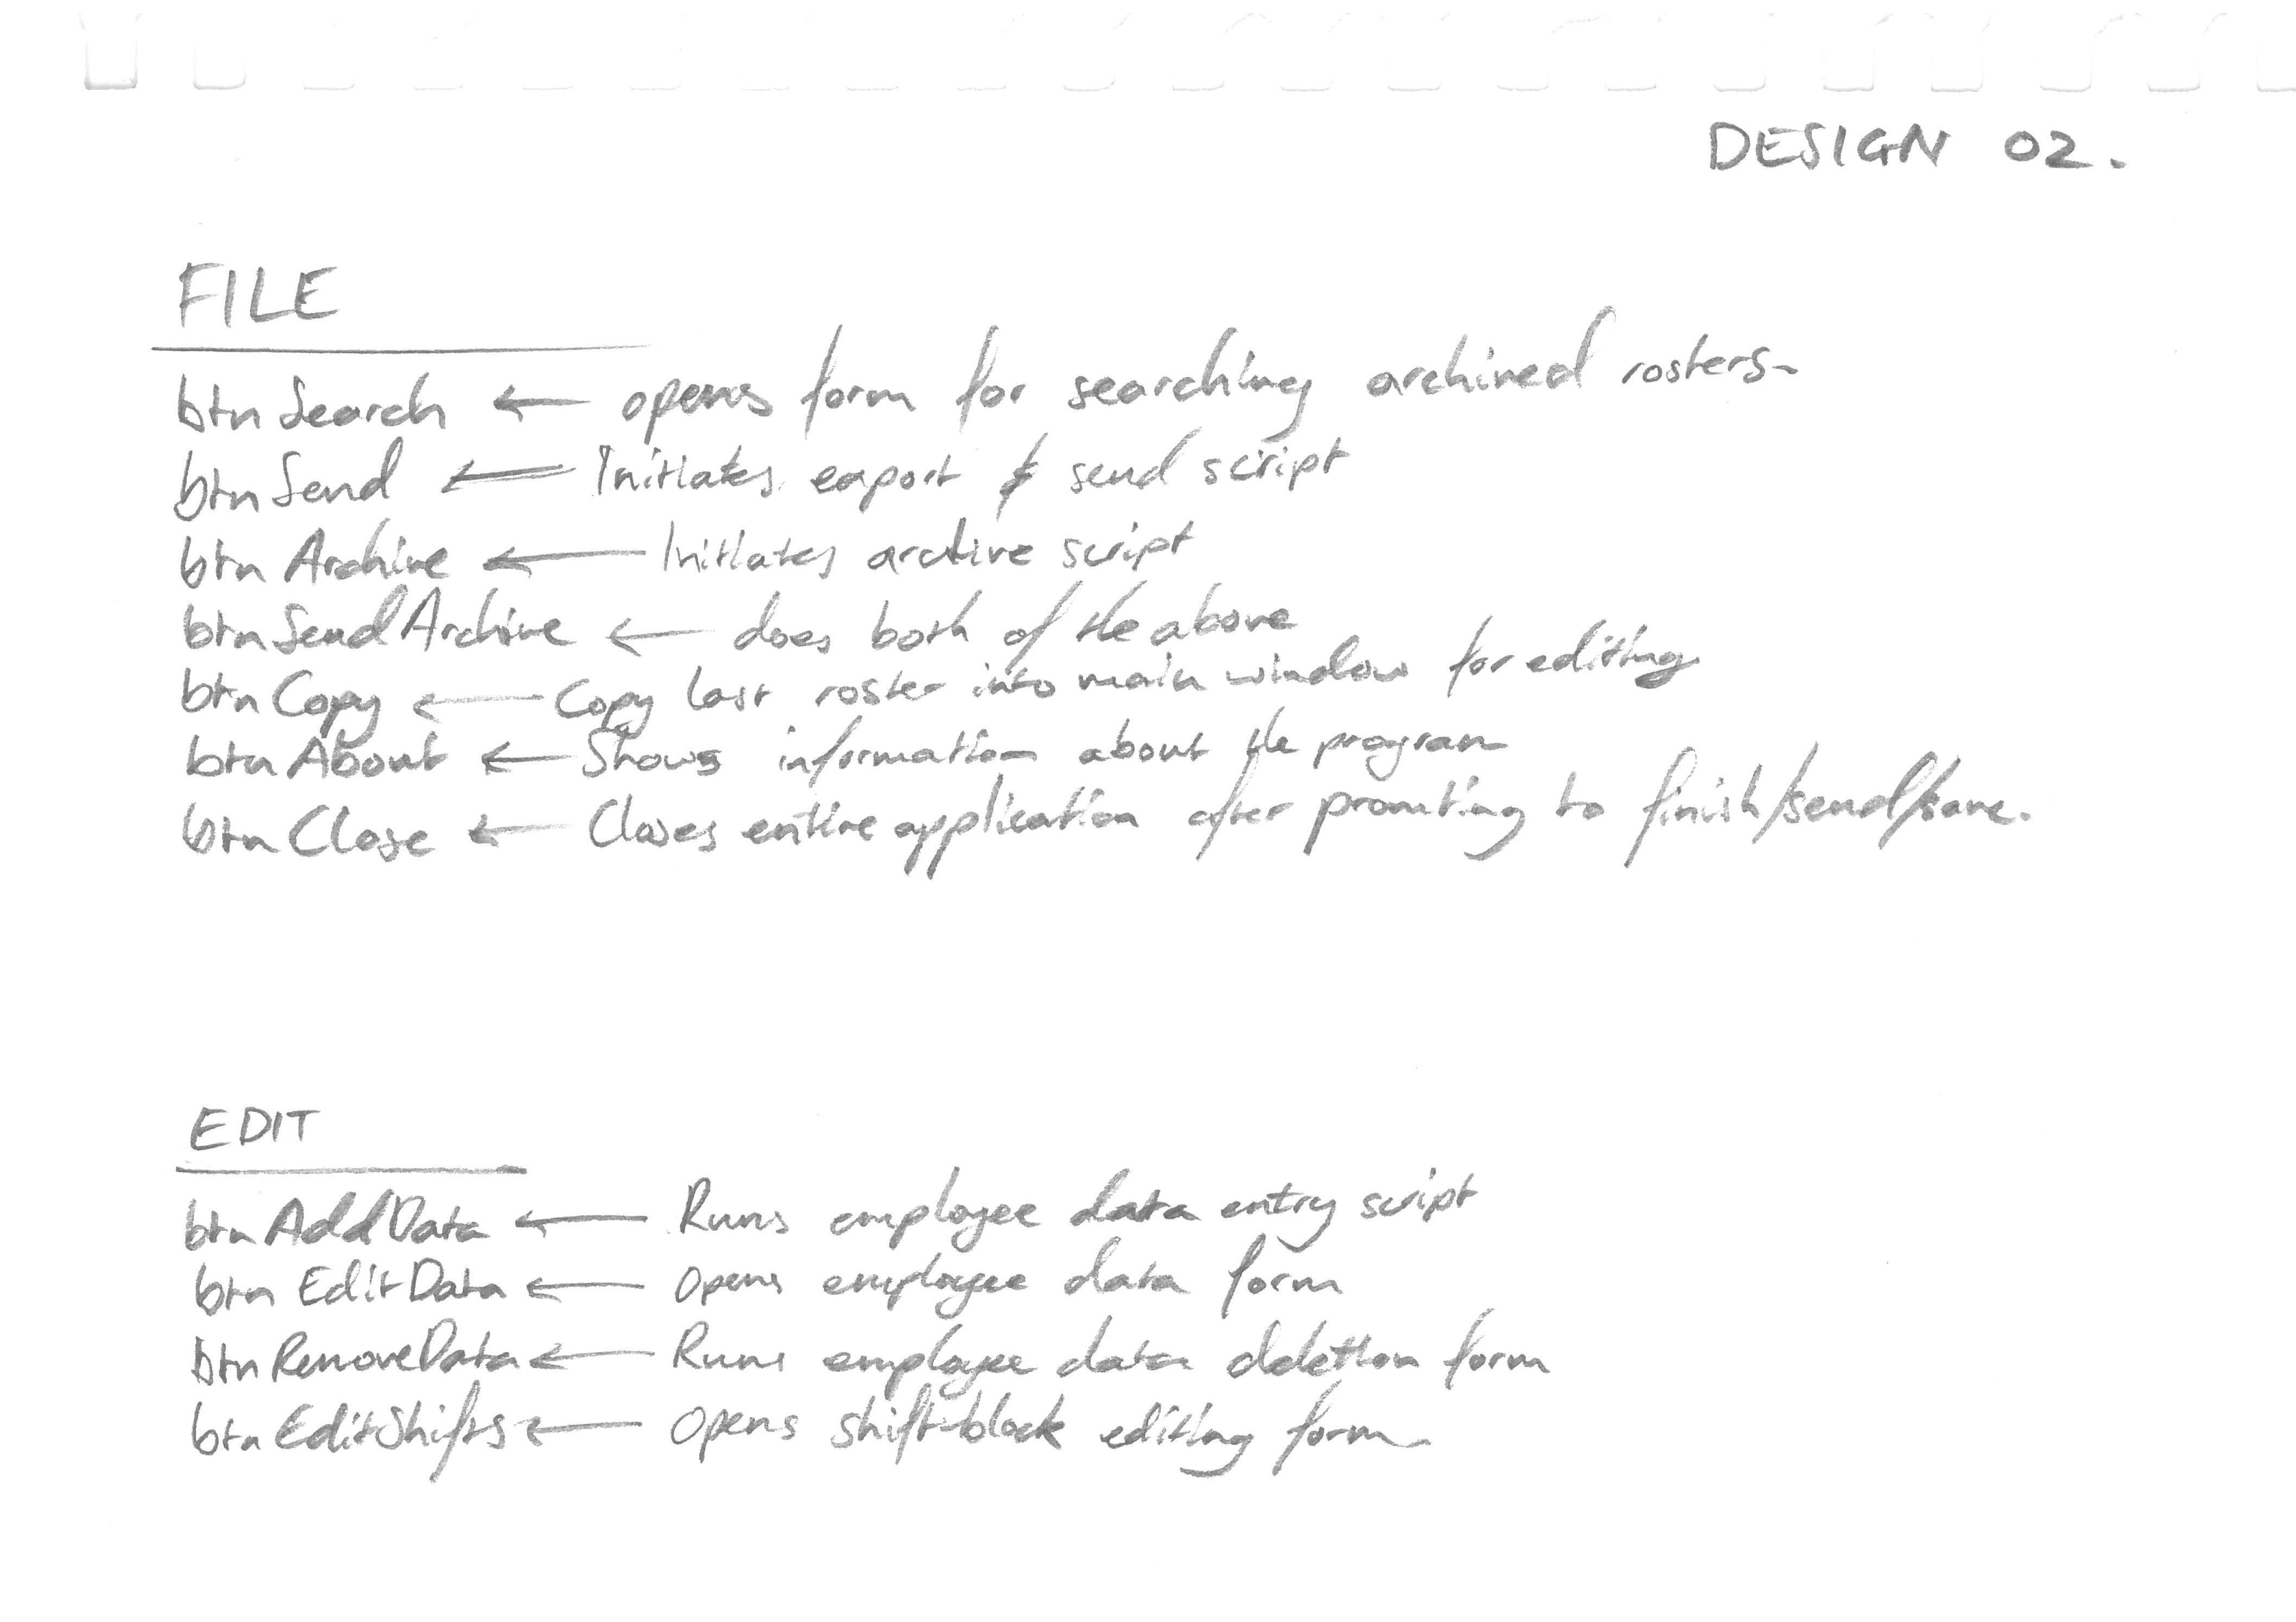 DESIGN 02.
FILE
btnSearch ← opens form for searching archived rosters.
btnSend ← Initiates export & send script
btnArchive ← Initiates archive script
btnSendArchive ← does both of the above
btnCopy ← Copy last roster into main window for editing
btnAbout ← Shows information about the program
btnClose ← Closes entire application after promting to finish/send/save.
EDIT
btnAddData ← Runs employee data entry script
btnEditData ← Opens employee data form
btnRemoveData ← Runs employee data deletion form
btnEditShifts ← Opens shift-block editing form